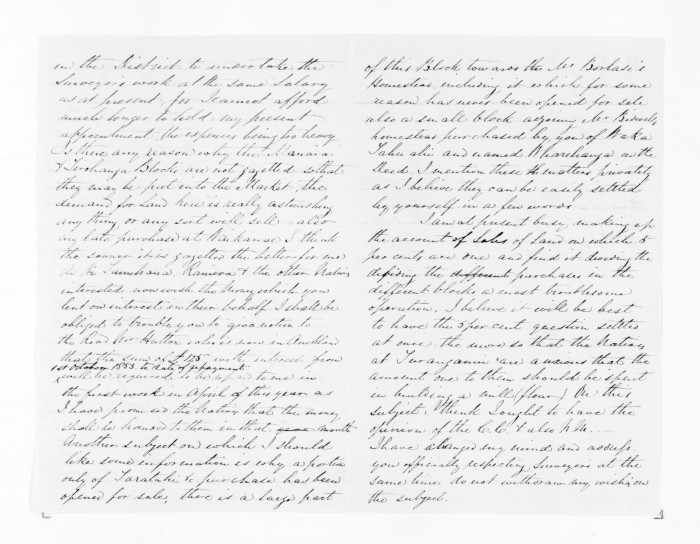 in the District to undertake the
Surveyor's work at the same Salary
as at present for I cannot afford
much longer to hold my present
appointment, the expenses being so heavy
Is there any reason why the Manaia
& Blocks are not gazetted so that
they may be put into the Market, the
demand for land here is really astonishing
any thing or any sort will sell - also
my late purchase at I think
the sooner it is gazetted the better for me
As Te & the other Natives
interested now wish the Money which you
lent on interest in their behalf I shall be
obliged to trouble you to give notice to
the Revd Mr Hutton who is now in
that the sum of £125 with interest from
1st October 1853 to date of repayment
will be required to be up to me in
the first week in April of this year as
I have promised the Natives that the money
shall be handed to them in that year month
Another subject on which I should
like some information is why a portion
only of Taratahi purchase has been
opened for sale, there is a large part
of this Block towards the Mr Borlase's
Homestead, including it which for some
reason has never been opened for sale
also a small block adjoining Mr Bidwill's
homestead purchased by you of Waka
Tahuahi and named Wharehanga in the
Deed I mention these matters privately
as I believe they can be easily settled
by yourself in a few words -
I am at present busy making up
the account of sales of land on which 5
per cents are one and find it dividing the
dividing the different purchases in the
different blocks a most troublesome
operation, I believe it will be best
to have the 5 per cent question settled
at once the more so that the Natives
at are anxious that the
amount due to them should be spent
in building a mill (flour) On this
subject I think I ought to have the
opinion of the C.C & also R.M. -
I have changed my mind and
you officially respecting Surveyors at the
same time do not withdraw my wishes on
the subject.